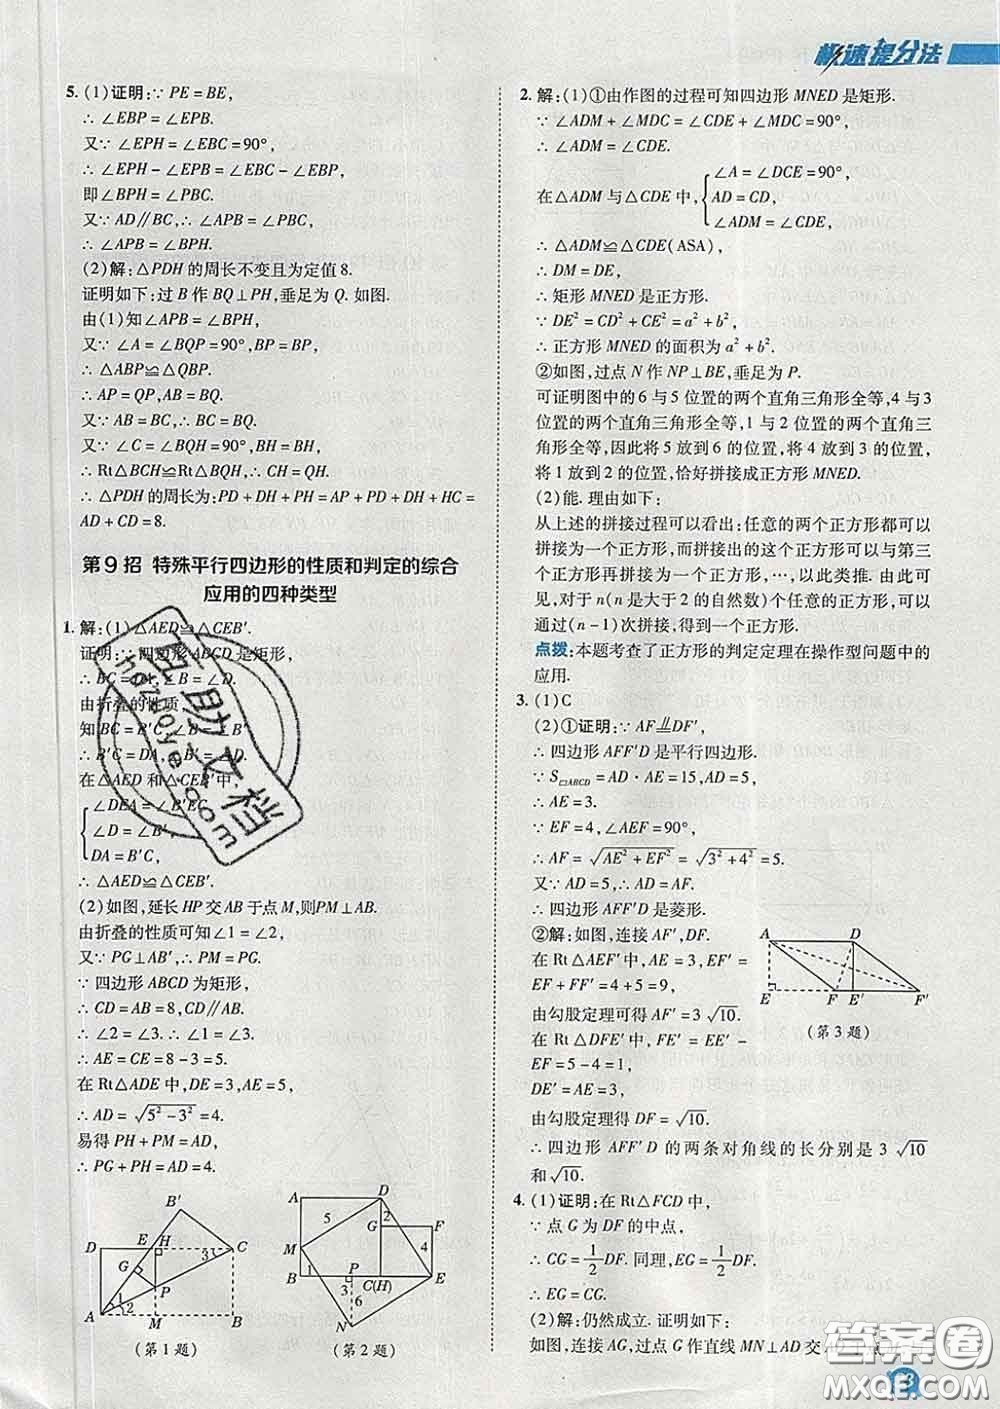 极速提分法
5. (1)证明:∵ PE=BE,
∴ ∠EBP=∠EPB.
又∵ ∠EPH=∠EBC=90°,
∴ ∠EPH-∠EPB=∠EBC-∠EBP,
即∠BPH=∠PBC.
又∵ AD∥BC,∴ ∠APB=∠PBC,
∴ ∠APB=∠BPH.
(2)解:△PDH 的周长不变且为定值 8.
证明如下:过 B 作 BQ⊥PH,垂足为 Q. 如图.
由(1)知∠APB=∠BPH,
又∵ ∠A=∠BQP=90°,BP=BP,
∴ △ABP≌△QBP.
∴ AP=QP,AB=BQ.
又∵ AB=BC,∴ BC=BQ.
又∵ ∠C=∠BQH=90°,BH=BH,
∴ Rt△BCH≌Rt△BQH,∴ CH=QH.
∴ △PDH 的周长为:PD+DH+PH=AP+PD+DH+HC=
AD+CD=8.
第 9 招 特殊平行四边形的性质和判定的综合
应用的四种类型
1. 解:(1)△AED≌△CEB′.
证明:∵ 四边形 ABCD 是矩形,
∴ BC=DA,∠B=∠D.
由折叠的性质,
知 BC=B′C,∠B=∠B′,
∴ B′C=DA,∠B′=∠D.
在△AED 和△CEB′中,
∠DEA=∠B′EC,
∠D=∠B′,
DA=B′C,
∴ △AED≌△CEB′.
(2)如图,延长 HP 交 AB 于点 M,则PM⊥AB.
由折叠的性质可知∠1=∠2,
又∵ PG⊥AB′,∴ PM=PG.
∵ 四边形 ABCD 为矩形,
∴ CD=AB=8,CD∥AB,
∴ ∠2=∠3,∴ ∠1=∠3,
∴ AE=CE=8-3=5.
在 Rt△ADE 中,DE=3,AE=5,
∴ AD=√(5²-3²)=4.
易得 PH+PM=AD,
∴ PG+PH=AD=4.
B′
D E H C
G 3
P
1
2
A M B
(第 1 题)
A D
5 2
G F
M 4
1 3
B P C(H) E
6
N
(第 2 题)
2. 解:(1)①由作图的过程可知四边形 MNED 是矩形.
∵ ∠ADM+∠MDC=∠CDE+∠MDC=90°,
∴ ∠ADM=∠CDE.
∠A=∠DCE=90°,
在△ADM 与△CDE 中, AD=CD,
∠ADM=∠CDE,
∴ △ADM≌△CDE(ASA).
∴ DM=DE,
∴ 矩形 MNED 是正方形.
∵ DE²=CD²+CE²=a²+b²,
∴ 正方形 MNED 的面积为 a²+b².
②如图,过点 N 作 NP⊥BE,垂足为 P.
可证明图中的 6 与 5 位置的两个直角三角形全等,4 与 3
位置的两个直角三角形全等,1 与 2 位置的两个直角三角
形全等,因此将 5 放到 6 的位置,将 4 放到 3 的位置,
将 1 放到 2 的位置,恰好拼接成正方形 MNED.
(2)能. 理由如下:
从上述的拼接过程可以看出:任意的两个正方形都可以
拼接为一个正方形,而拼接出的这个正方形可以与第三
个正方形再拼接为一个正方形,…,依此类推. 由此可
见,对于 n(n 是大于 2 的自然数)个任意的正方形,可以
通过(n-1)次拼接,得到一个正方形.
点拨:本题考查了正方形的判定定理在操作型问题中的
应用.
3. (1)C
(2)①证明:∵ AF⫽DF′,
∴ 四边形 AFF′D 是平行四边形.
∵ S▱ABCD=AD·AE=15,AD=5,
∴ AE=3.
∵ EF=4,∠AEF=90°,
∴ AF=√(AE²+EF²)=√(3²+4²)=5.
又∵ AD=5,∴ AD=AF.
∴ 四边形 AFF′D 是菱形.
②解:如图,连接 AF′,DF.
在 Rt△AEF′中,AE=3,EF′=
EF+FF′=4+5=9,
由勾股定理可得 AF′=3√10.
在 Rt△DFE′中,FE′=EE′-
EF=5-4=1,
DE′=AE=3,
由勾股定理得 DF=√10.
∴ 四边形 AFF′D 的两条对角线的长分别是 3√10
和√10.
A D
E F E′ F′
(第 3 题)
4. (1)证明:在 Rt△FCD 中,
∵ 点 G 为 DF 的中点,
∴ CG=1/2 DF. 同理,EG=1/2 DF.
∴ EG=CG.
(2)解:仍然成立. 证明如下:
如图,连接 AG,过点 G 作直线 MN⊥AD 交
互助文档
hdzuoye.com
答案圈
MXQE.COM